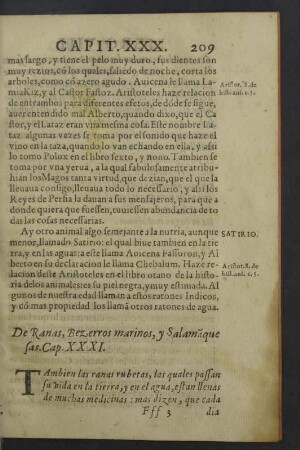 CAPIT. XXX. 209
mas largo, y tiene el pelo muy duro, sus dientes son
muy rezios, cõ los quales, saliẽdo de noche, corta los
arboles, como cõ azero agudo. Auicena le llama La-
miakiz, y al Castor Fastoz. Aristoteles haze relacion
de entrambos para diferentes efetos, de dõde se sigue,
auer entendido mal Alberto, quando dixo, que el Ca
stor, y el Lataz eran vna mesma cosa. Este nombre La
taz algunas vezes se toma por el sonido que haze el
vino en la taza, quando lo van echando en ella, y assi
lo tomo Polux en el libro sexto, y nono. Tambien se
toma por vna yerua, a la qual fabulosamente atribu-
hian los Magos tanta virtud, que dezian, que el que la
lleuaua consigo, lleuaua todo lo necessario, y assi los
Reyes de Persia la dauan a sus mensajeros, para que a
donde quiera que fuessen, tuuiessen abundancia de to
das las cosas necessarias.
Aristot. 8. de
hist. ani. c. 5.
Ay otro animal algo semejante a la nutria, aunque
menor, llamado Satirio: el qual biue tambien en la tie
rra, y en las aguas: a este llama Auicena Fassuron, y Al
berto en su declaracion le llama Chebalum. Haze re
lacion deste Aristoteles en el libro otauo de la histo-
ria de los animales: es su piel negra, y muy estimada. Al
gunos de nuestra edad llaman a estos ratones Indicos,
y cõ mas propiedad los llamã otros ratones de agua.
SATIRIO.
Aristot. 8. de
hist. ani. c. 5.
De Ranas, Bezerros marinos, y Salamãque
sas. Cap. XXXI.
TAmbien las ranas rubetas, las quales passan
su vida en la tierra, y en el agua, estan llenas
de muchas medicinas: mas dizen, que cada
Fff 3 dia